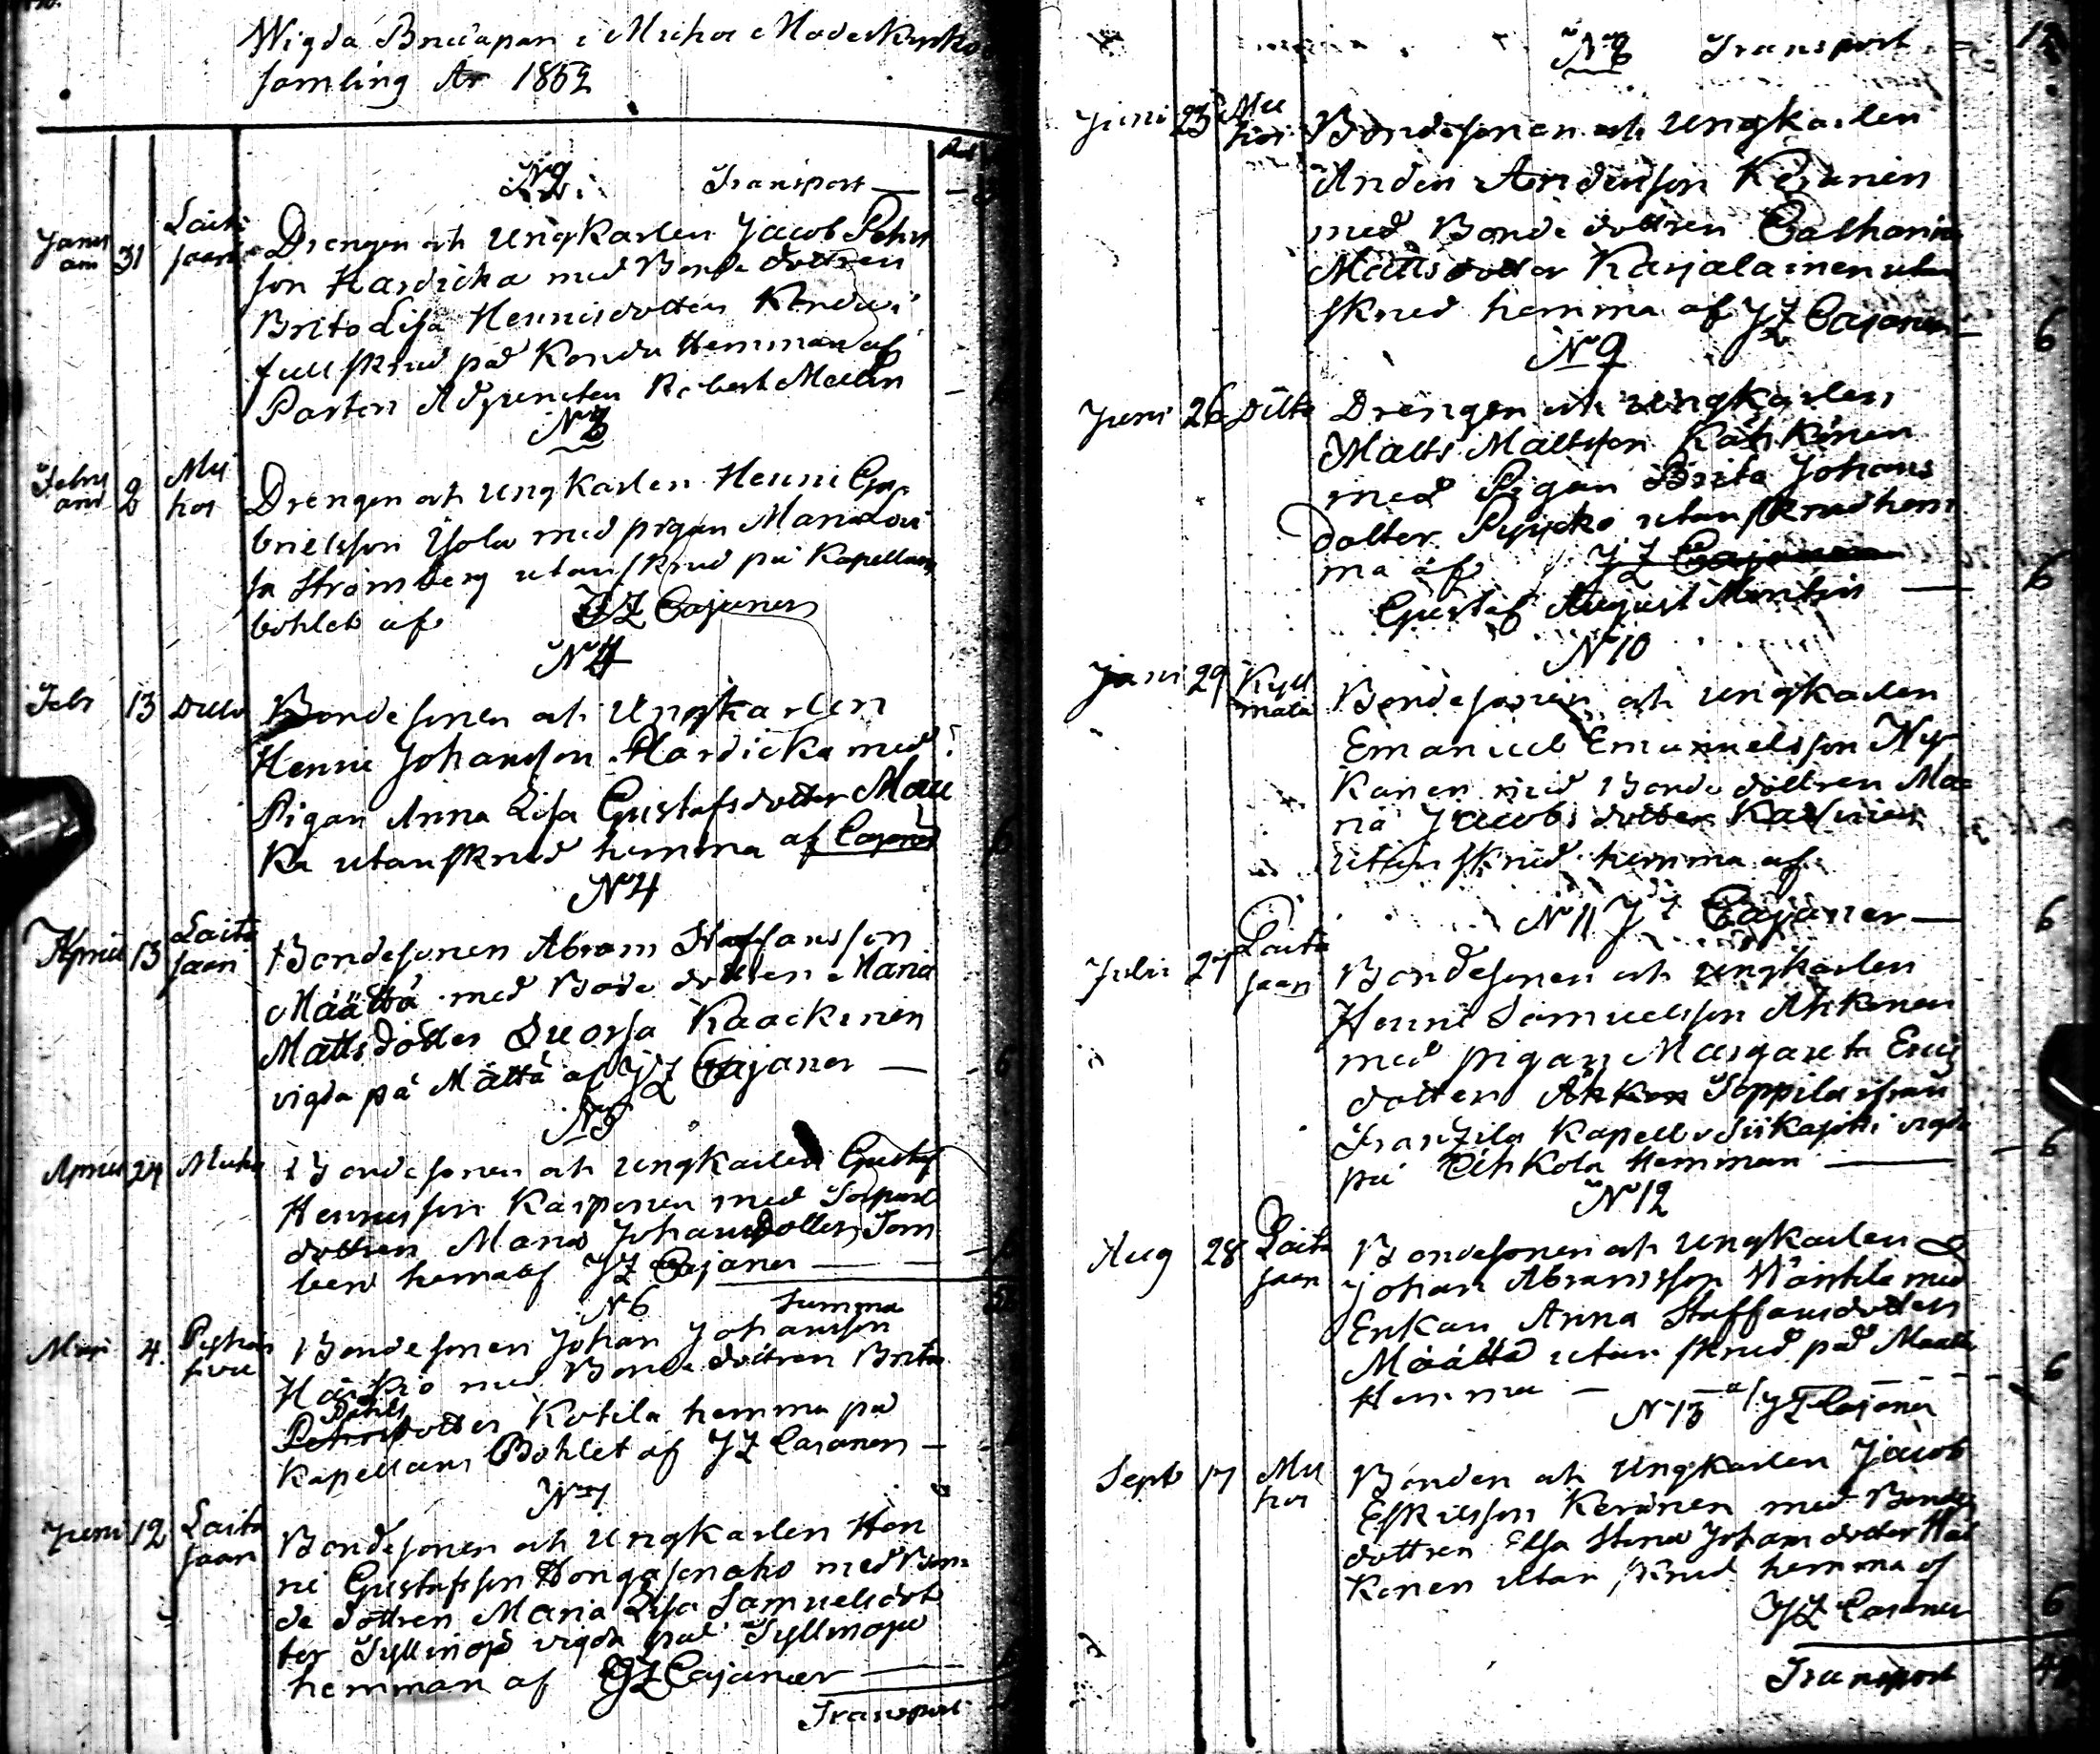 Wigda Brudapar i Muhos Moderkyrko
samling År 1862
N2. Transport
Janu
ari 31 Laiti
saari Drengen och Ungkarlen Jacob Pehrs
son Hardicka med Bonde dottren
Brita Lisa Hennisdotter Kondu
full skrud på Kondu Hemman af
Pastors Adjuncten Robert Mellin
N3
Febru
ari 2 Mu
hos Drengen och Ungkarlen Henric Ga
brielsson Isola med pigan Maria Lovi
sa Strömberg utan skrud på Kapellans
bohlet af JZ Cajaner
N4
Febr 13 Dito Bondesonen och Ungkarlen
Henric Johansson Hardicka med
Pigan Anna Lisa Gustafsdotter Mau
ka utan skrud hemma af Cajaner 6
N4
April 13 Laita
saari Bondesonen Abram Staffansson
Määttä med Bonde dottren Maria
Mattsdotter Kaackinen
vigda på Mättä af JZ Cajaner — 6
N5
April 24 Muhos Bondesonen och Ungkarlen Gustaf
Hennisson Karponen med Torpare
dottren Maria Johansdotter Tom
berg hema af JZ Cajaner —
N6 Summa
Maji 4. Pyhän
sivu Bondesonen Johan Johansson
Härkiö med Bonde dottren Brita
Påhls
Pehrsdotter Kotila hemma på
Kapellans Bohlet af JZ Cajaner —
N7
Juni 12 Laita
saari Bondesonen och Ungkarlen Hen
ric Gustafsson Hongasenaho med Bon=
de dottren Maria Lisa Samuelsdot
ter Tyllinoja vigda på Tyllinoja
hemman af JZ Cajaner
Transport
N8 Transport 12
Juni 25 Mu
hos Bondesonen och Ungkarlen
Anders Andersson Keränen
med Bonde dottren Catharina
Mattsdotter Karjalainen utan
skrud hemma af JZ Cajaner — 6
N9
Juni 26 Ditto Drengen och Ungkarlen
Matts Mattsson Kähkönen
med Pigan Brita Johans
dotter Pyycko utan skrud hem
ma af JZ Cajaner
Gustaf August Montin — 6
N10
Juni 29 Kyll
mälä Bondesonen och Ungkarlen
Emanuel Emanuelsson Ny
känen med Bonde dottren Ma=
ria Jacobs dotter
utan skrud hemma af
N11 JZ Cajaner — 6
Julii 27 Laita
saari Bondesonen och Ungkarlen
Henric Samuelsson Ahkenen
med pigan Margareta Erics
dotter Soppila ifrån
Frantzila Kapell Siikajoki vigda
på Pihkola Hemman — 6
N12
Aug 28 Laita
saari Bondesonen och Ungkarlen
Johan Abramsson Wänttilä med
Enkan Anna Staffansdotter
Määttä utan skrud på Määttä
Hemma — af JZ Cajaner 6
N13
Sept 17 Mu
hos Bonden och Ungkarlen Jacob
Eskilsson Keränen med Bonde
dottren Elsa Stina Johansdotter Häi
känen utan skrud hemma af
JZ Cajaner 6
Transport